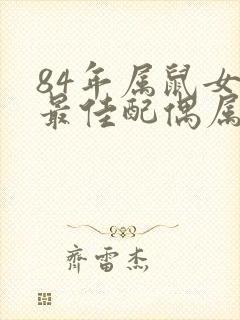 84年属鼠女
最佳配偶属
齐雷杰